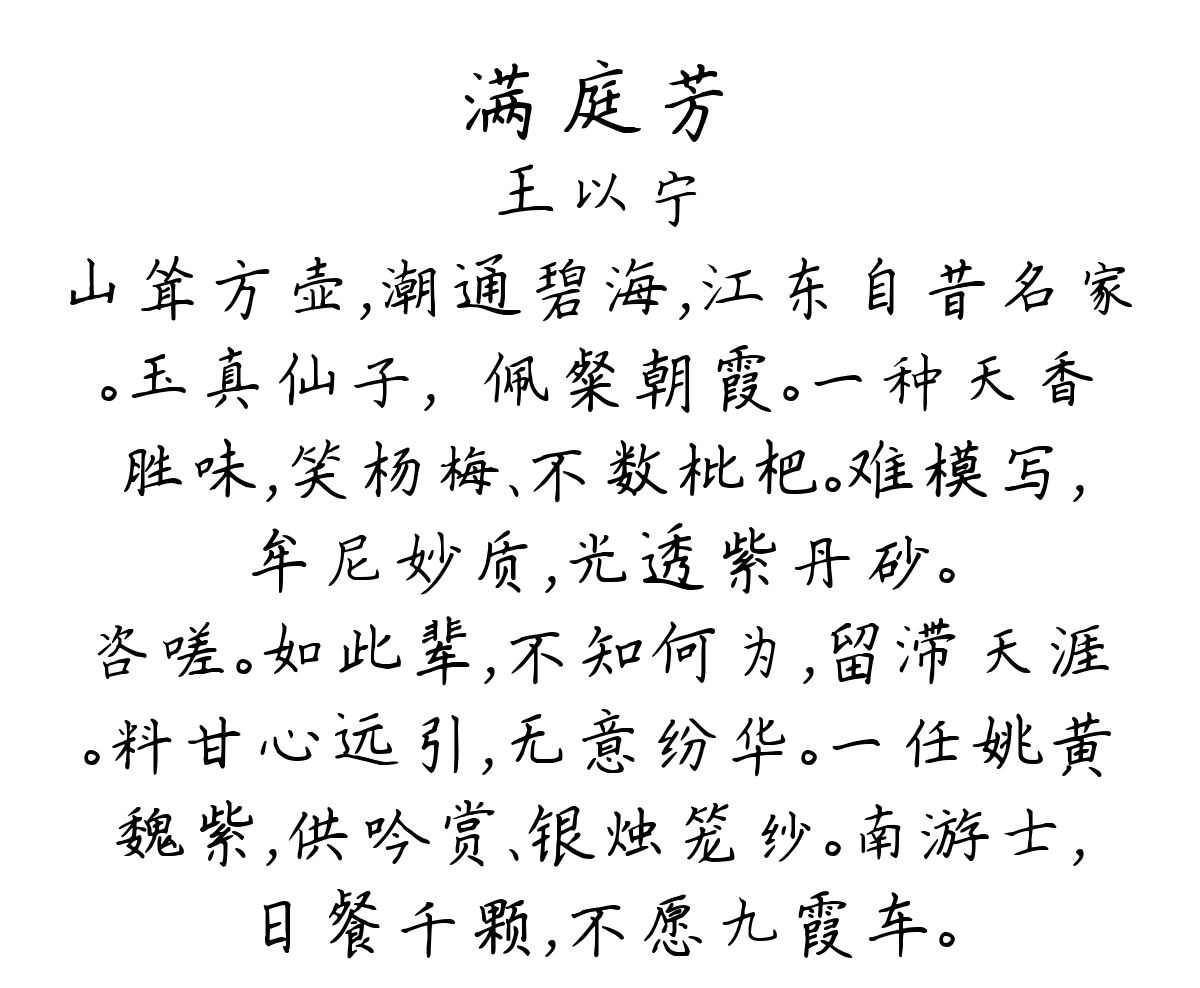 满庭芳
王以宁
山耸方壶,潮通碧海,江东自昔名家
。玉真仙子,佩粲朝霞。一种天香
胜味,笑杨梅、不数枇杷。难模写,
牟尼妙质,光透紫丹砂。
咨嗟。如此辈,不知何为,留滞天涯
。料甘心远引,无意纷华。一任姚黄
魏紫,供吟赏、银烛笼纱。南游士,
日餐千颗,不愿九霞车。